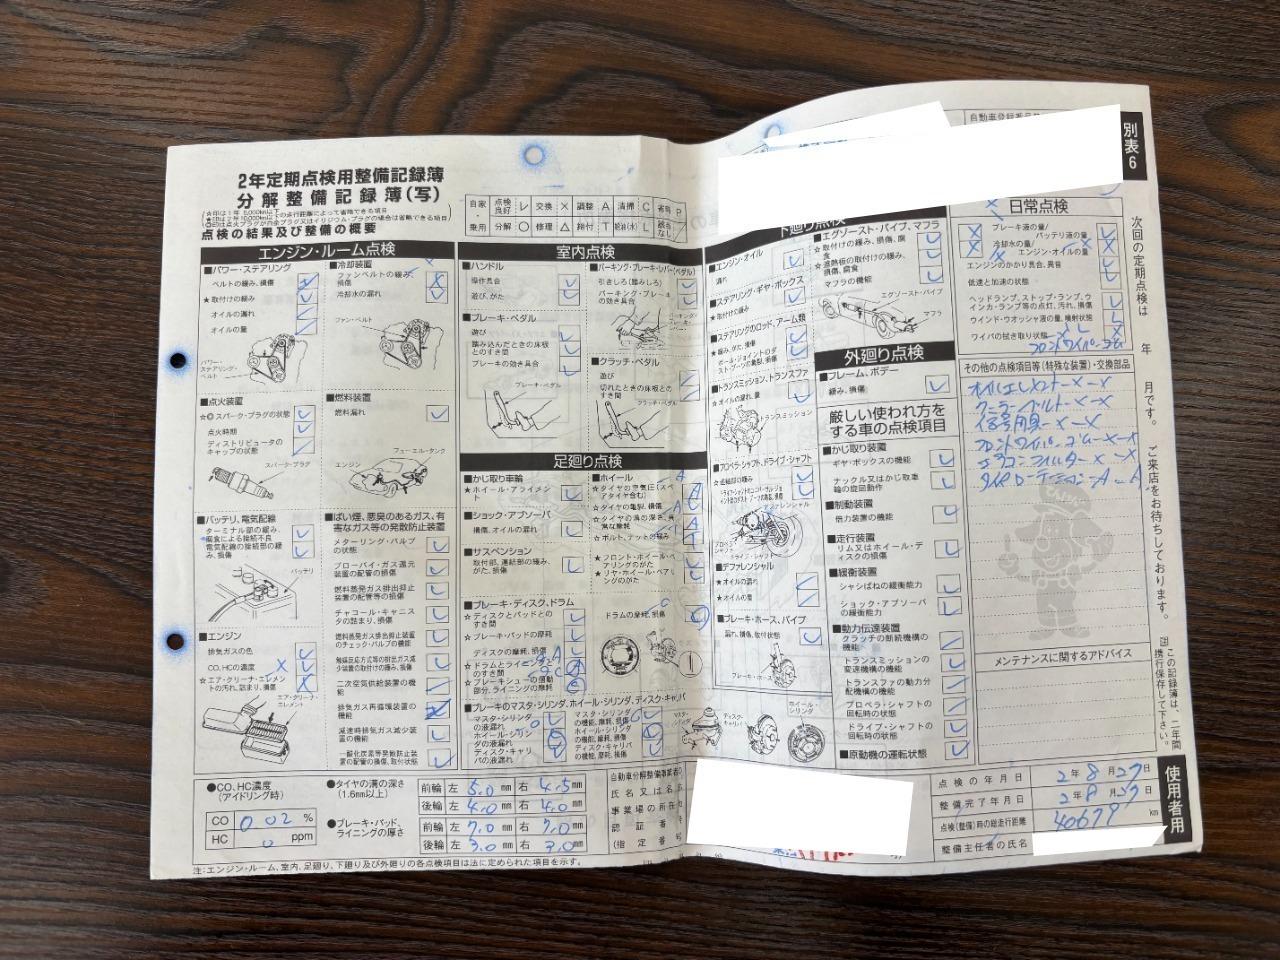 別表6
2年定期点検用整備記録簿
分解整備記録簿(写)
点検の結果及び整備の概要
自家・乗用
点検良好 レ 交換 × 調整 A 清掃 C 省略 P
分解 ○ 修理 △ 締付 T 給油(水) L 該当なし
エンジン・ルーム点検
■パワー・ステアリング
ベルトの緩み、損傷
★取付けの緩み
オイルの漏れ
オイルの量
パワー・ステアリング・ベルト
■点火装置
スパーク・プラグの状態
点火時期
ディストリビュータのキャップの状態
スパーク・プラグ
■バッテリ、電気配線
ターミナル部の緩み、腐食による接続不良
電気配線の接続部の緩み、損傷
バッテリ
■エンジン
排気ガスの色
CO、HCの濃度
★エア・クリーナ・エレメントの汚れ、詰まり、損傷
エア・クリーナ・エレメント
■冷却装置
ファンベルトの緩み、損傷
冷却水の漏れ
ファン・ベルト
■燃料装置
燃料漏れ
フューエル・タンク
エンジン
■ばい煙、悪臭のあるガス、有害なガス等の発散防止装置
メターリング・バルブの状態
ブローバイ・ガス還元装置の配管の損傷
燃料蒸発ガス排出抑止装置の配管等の損傷
チャコール・キャニスタの詰まり、損傷
燃料蒸発ガス排出抑止装置のチェック・バルブの機能
触媒反応方式等の排出ガス減少装置の取付けの緩み、損傷
二次空気供給装置の機能
排気ガス再循環装置の機能
減速時排気ガス減少装置の機能
一酸化炭素等発散防止装置の配管の損傷、取付状態
室内点検
■ハンドル
操作具合
遊び、がた
■ブレーキ・ペダル
遊び
踏み込んだときの床板とのすき間
ブレーキの効き具合
ブレーキ・ペダル
■パーキング・ブレーキ・レバー(ペダル)
引きしろ(踏みしろ)
パーキング・ブレーキの効き具合
■クラッチ・ペダル
遊び
切れたときの床板とのすき間
クラッチ・ペダル
足廻り点検
■かじ取り車輪
☆ホイール・アライメント
■ショック・アブソーバ
損傷、オイルの漏れ
■サスペンション
取付部、連結部の緩み、がた、損傷
■ブレーキ・ディスク、ドラム
☆ディスクとパッドとのすき間
☆ブレーキ・パッドの摩耗
ディスクの摩耗、損傷
☆ドラムとライニングとのすき間
☆ブレーキシューの摺動部分、ライニングの摩耗
ドラムの摩耗、損傷
■ホイール
☆タイヤの亀裂、損傷
☆ボルト、ナットの緩み
★フロント・ホイール・ベアリングのがた
★リヤ・ホイール・ベアリングのがた
■ブレーキのマスタ・シリンダ、ホイール・シリンダ、ディスク・キャリパ
マスタ・シリンダの液漏れ
ホイール・シリンダの液漏れ
ディスク・キャリパの液漏れ
マスタ・シリンダの機能、摩耗、損傷
ホイール・シリンダの機能、摩耗、損傷
ディスク・キャリパの機能、摩耗、損傷
下廻り点検
■エンジン・オイル
漏れ
■ステアリング・ギヤ・ボックス
★取付けの緩み
■ステアリングのロッド、アーム類
★緩み、がた、損傷
ボール・ジョイントのダスト・ブーツの亀裂、損傷
■トランスミッション、トランスファ
☆オイルの漏れ、量
トランスミッション
■プロペラ・シャフト、ドライブ・シャフト
☆連結部の緩み
デファレンシャル
ドライブ・シャフト
■デファレンシャル
★オイルの漏れ
★オイルの量
■ブレーキ・ホース、パイプ
漏れ、損傷、取付状態
ブレーキ・ホース
■エグゾースト・パイプ、マフラ
☆取付けの緩み、損傷、腐食
★遮熱板の取付けの緩み、損傷、腐食
マフラの機能
エグゾースト・パイプ
マフラ
外廻り点検
■フレーム、ボデー
緩み、損傷
厳しい使われ方をする車の点検項目
■かじ取り装置
ギヤ・ボックスの機能
ナックル又はかじ取車輪の旋回動作
■制動装置
倍力装置の機能
■走行装置
リム又はホイール・ディスクの損傷
■緩衝装置
シャシばねの緩衝能力
ショック・アブソーバの緩衝能力
■動力伝達装置
クラッチの断続機構の機能
トランスミッションの変速機構の機能
トランスファの動力分配機構の機能
プロペラ・シャフトの回転時の状態
ドライブ・シャフトの回転時の状態
■原動機の運転状態
日常点検
ブレーキ液の量/バッテリ液の量
冷却水の量/エンジン・オイルの量
エンジンのかかり具合、異音
低速と加速の状態
ヘッドランプ、ストップ・ランプ、ウインカ・ランプ等の点灯、汚れ、損傷
ウインド・ウオッシャ液の量、噴射状態
ワイパの拭き取り状態
フロントワイパーゴム
その他の点検項目等(特殊な装置)・交換部品
オイルエレメント-×-×
クーラーベルト-×-×
信号用具-×-×
フロントワイパーゴム-×-×
エアコンフィルター-×-×
タイヤローテーション-A-A
メンテナンスに関するアドバイス
次回の定期点検は 年 月です。 ご来店をお待ちしております。
この記録簿は、二年間携行保存して下さい。
使用者用
●CO、HC濃度(アイドリング時)
CO 0.02 %
HC 0 ppm
●タイヤの溝の深さ(1.6mm以上)
前輪 左 5.0 mm 右 4.5 mm
後輪 左 4.0 mm 右 4.0 mm
●ブレーキ・パッド、ライニングの厚さ
前輪 左 7.0 mm 右 7.0 mm
後輪 左 3.0 mm 右 3.0 mm
点検の年月日 2年8月27日
整備完了年月日 2年8月27日
点検(整備)時の総走行距離 40679 km
整備主任者の氏名
注:エンジン・ルーム、室内、足廻り、下廻り及び外廻りの各点検項目は法に定められた項目を示す。